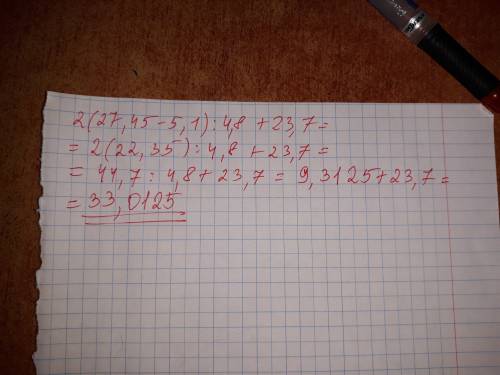 2(27,45-5,1):4,8+23,7=
= 2(22,35):4,8+23,7=
= 44,7:4,8+23,7= 9,3125+23,7=
= 33,0125